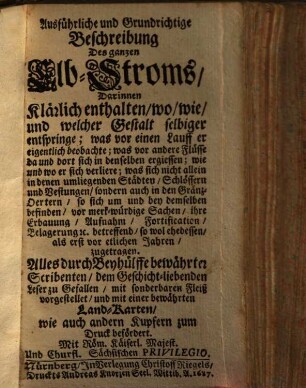 Ausführliche und Grundrichtige
Beschreibung
Des ganzen
Elb-Stroms/
Darinnen
Klärlich enthalten/wo/wie/
und welcher Gestalt selbiger
entspringe; was vor einen Lauff er
eigentlich beobachte; was vor andere Flüsse
da und dort sich in denselben ergiessen; wie
und wo er sich verliere; was sich nicht allein
in denen umliegenden Städten/Schlössern
und Vestungen/sondern auch in den Gränz-
Oertern/ so sich um und bey demselben
befinden/ vor merk-würdige Sachen/ ihre
Erbauung/ Aufnahm/ Fortification/
Belagerung ꝛc. betreffend/ so wol ehedessen/
als erst vor etlichen Jahren/
zugetragen.
Alles durch Beyhülffe bewährter
Scribenten/dem Geschicht-liebenden
Leser zu Gefallen/ mit sonderbaren Fleiß
vorgestellet/ und mit einer bewährten
Land-Karten/
wie auch andern Kupfern zum
Druck befördert.
Mit Röm. Käiserl. Majest.
Und Churfl. Sächsischen PRIVILEGIO.
Nürnberg/ In Verlegung Christoff Riegels/
Druckts Andreas Knorzen Seel. Wittib. A.